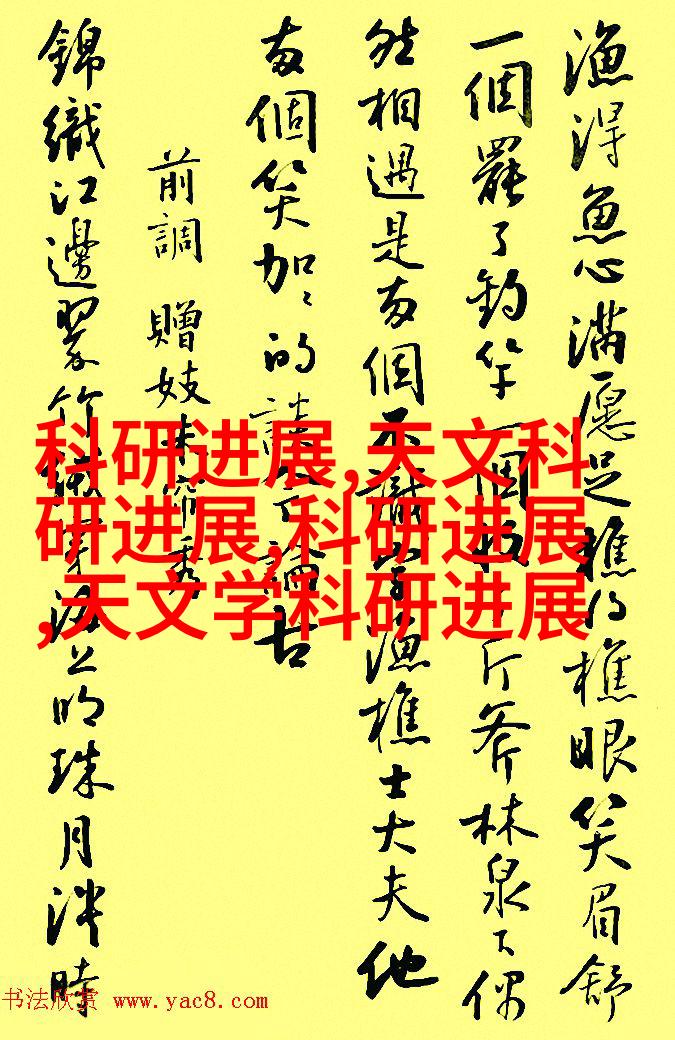 漁得魚心滿愿足樵得樵眼笑眉舒
一個罷了釣竿一個收了斤斧林泉下偶
然相遇是兩個不識字漁樵士大夫他
兩個笑加〻的談今論古
前調 贈妓朱帘秀
錦織江邊翠竹絨穿海上明珠月淡時
科研进展,天文科
研进展,科研进展
,天文学科研进展
书法欣赏 www.yac8.com